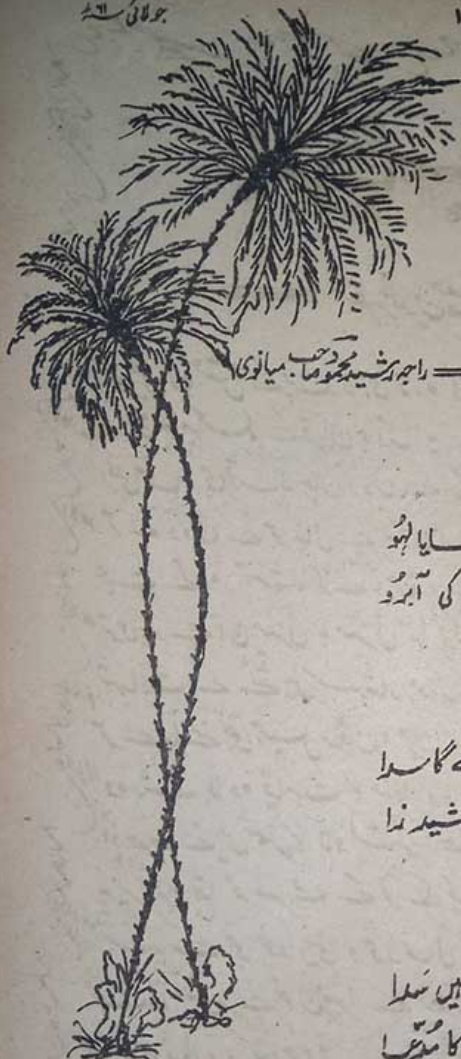 جولائی ۶۱ء
راجہ رشید محمود صاحب میانوی
سایا لہُو
کی آبرُو
گا سدا
میں سدا
کا مُدّعا